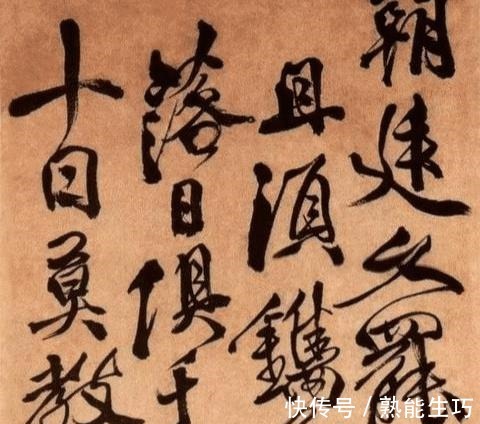 朝廷久罷
且須鐫
落日俱千
十日莫教
快传号 / 熟能生巧